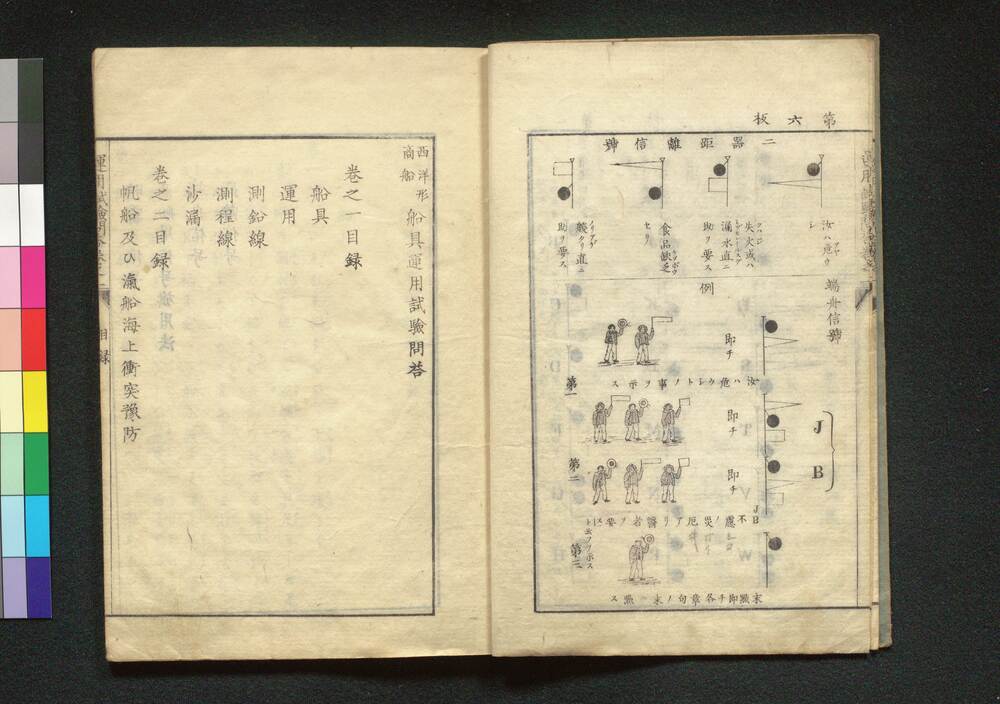 第六板
二器距離信號
汝ハ危ウシ
失火或ハ
漏水直ニ
助ヲ要ス
食品缺乏
セリ
直ニ
助ヲ要ス
端舟信號
例
即チ
汝ハ危ウシトノ事ヲ示ス
第一
即チ
J
B
第二
即チ
JB
不慮ノ災厄アリ醫者ヲ要ス
第三
末點即チ各章句ノ末ニ點ス
西洋形
商船
船具運用試驗問答
卷之一目録
船具
運用
測鉛線
測程線
沙漏
卷之二目録
帆船及ひ漁船海上衝突豫防
目録